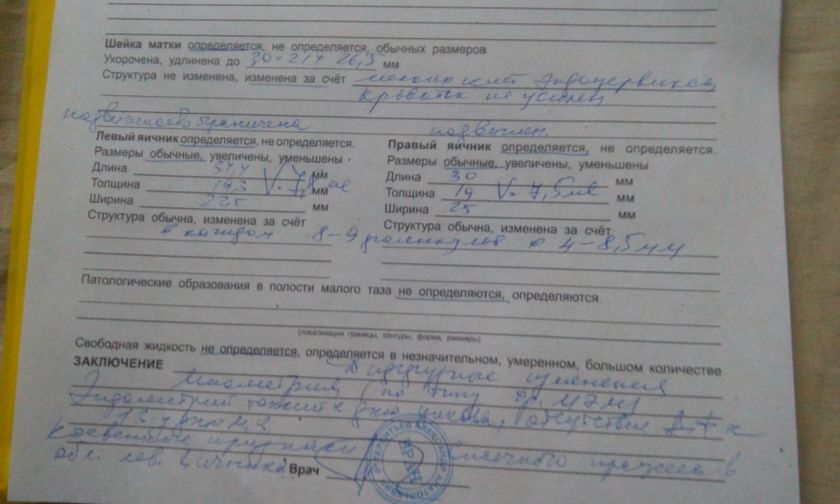 Шейка матки определяется, не определяется, обычных размеров
Укорочена, удлинена до 30*21* 26,5 мм
Структура не изменена, изменена за счёт мелких кист эндоцервикса,
кровоток не усилен
подвижность ограничена подвижен
Левый яичник определяется, не определяется. Правый яичник определяется, не определяется.
Размеры обычные, увеличены, уменьшены Размеры обычные, увеличены, уменьшены
Длина 31,4 мм Длина 30 мм
Толщина 19,3 мм Толщина 19 V= 7,5 мл мм
Ширина 22,5 мм Ширина 25 мм
Структура обычна, изменена за счёт Структура обычна, изменена за счёт
в каждом 8-9 фолликулов d 4-8,5 мм
Патологические образования в полости малого таза не определяются, определяются
(локализация границы, контуры, форма, размеры)
Свободная жидкость не определяется, определяется в незначительном, умеренном, большом количестве
ЗАКЛЮЧЕНИЕ Диффузные изменения
миометрия (по типу
Эндометрий тонкий к дню цикла, отсутствие к
13-у дню
Косвенные признаки спаечного процесса в
обл. лев. яичника Врач
ВРАЧ